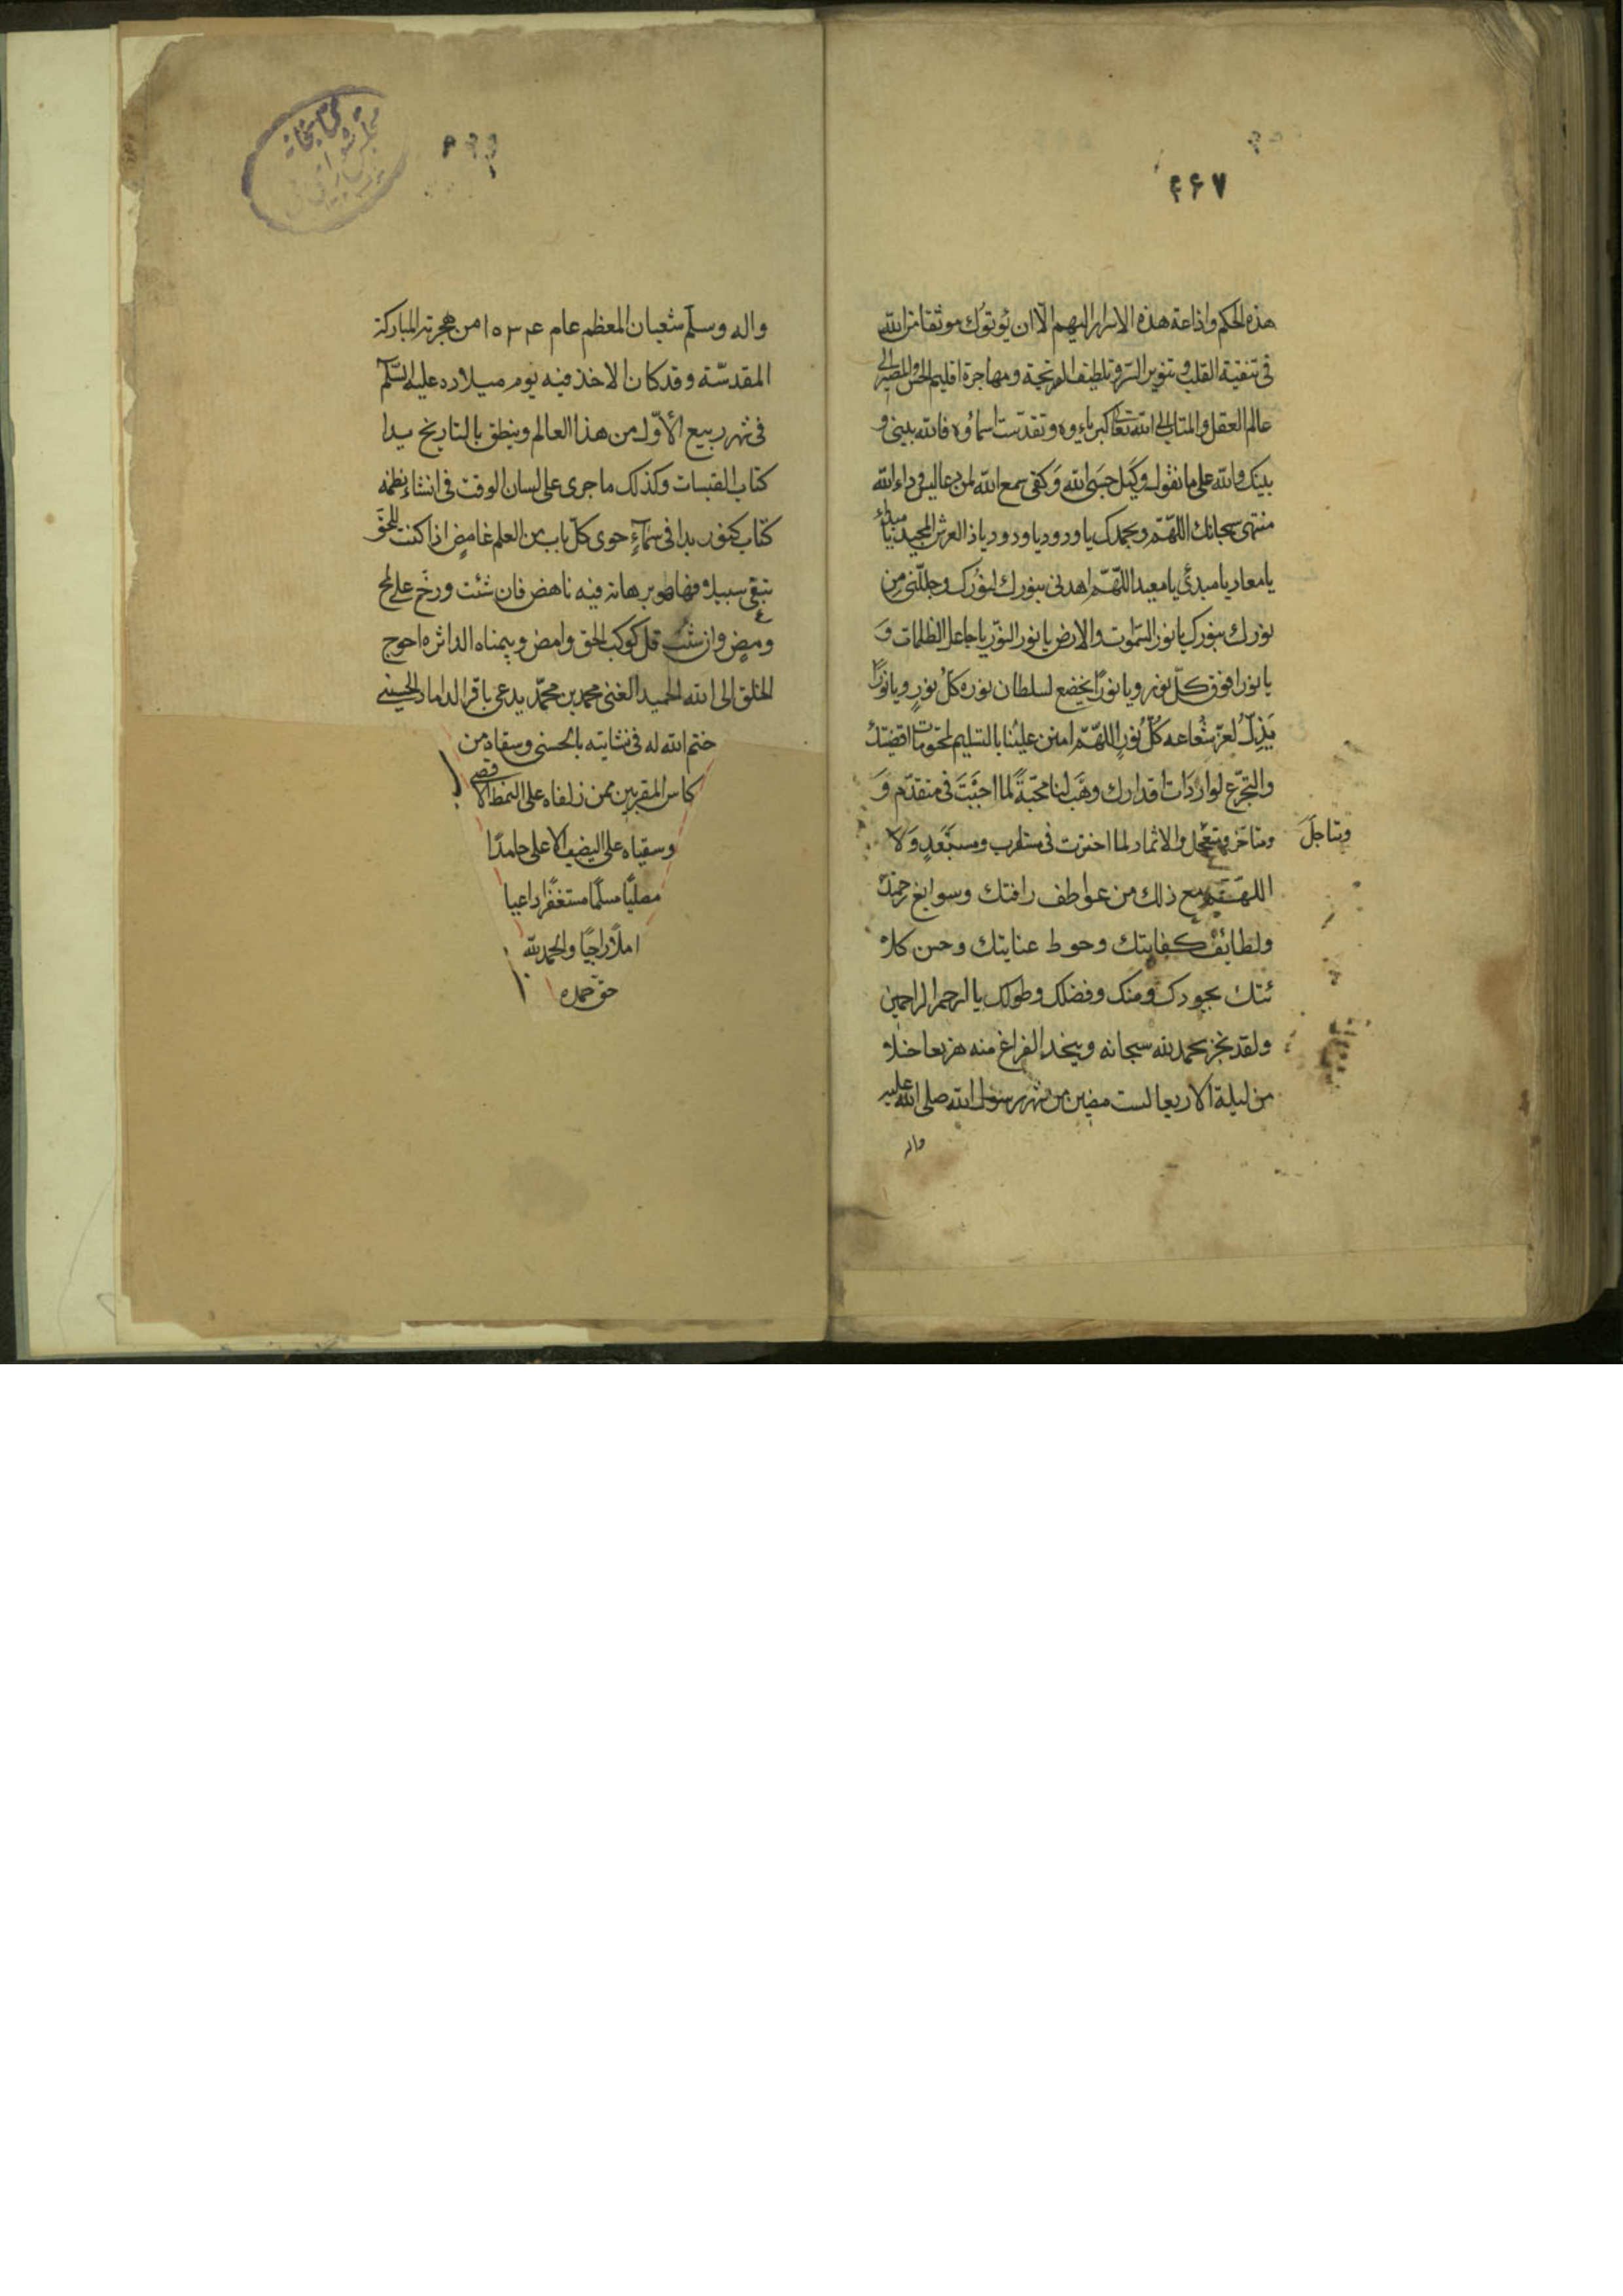 ۴۶۷
هذه الحكم واذاعة هذه الاسرار اليهم الا ان يؤتوك موثقا من الله
فى تنقية القلب و تنوير السر و تلطيف القريحة ومهاجرة اقليم الحس والمصير الى
عالم العقل والمتاب الى الله تعالى كبرياؤه وتقدست اسماؤه فالله بينى و
بينك والله على ما نقول وكيل حسبى الله وكفى سمع الله لمن دعا ليس وراء الله
منتهى سبحانك اللهم وبحمدك يا ودود يا ودود يا ذا العرش المجيد يا مبدئ
يا معاد يا مبدئ يا معيد اللهم اهدنى بنورك لنورك وجللنى من
نورك بنورك يا نور السموت والارض يا نور النور يا جاعل الظلمات و
يا نورا فوق كل نور ويا نورا يخضع لسلطان نوره كل نور ويا نورا
يذل لعز شعاعه كل نور اللهم امنن علينا بالتسليم لمحتومات اقضيتك
والتجرع لواردات اقدارك وهب لنا محبة لما احببت فى متقدم و
ومتاخر ومتعجل والايثار لما اخترت فى مستقرب ومستبعد ولا
ومتاجل
اللهم مع ذلك من عواطف رافتك وسوابغ رحمتك
ولطائف كفايتك وحوط عنايتك وحسن كلا
ئتك بجودك ومنك وفضلك وطولك يا ارحم الراحمين
ولقد نجز بحمد الله سبحانه الفراغ منه هزيعا خلا
من ليلة الاربعا لست مضين من شهر رسول الله صلى الله عليه
واله
واله وسلم شعبان المعظم عام ۱۰۳۴ من هجرته المباركة
المقدسة وقد كان الاخذ فيه يوم ميلاده عليه السلم
فى شهر ربيع الأول من هذا العالم وينطق بالتاريخ بدا
كتاب القبسات وكذلك ما جرى على لسان الوقت فى انشاء نظمه
كتاب كنور بدا فى سماء حوى كل باب من العلم غامض اذا كنت للحق
تبقى سبيلا فها طور برهانه فيه ناهض فان شئت ورخ على لمح
ومض وان شئت قل كوكب الحق وامض وبيمناه الداثره احوج
الخلق الى الله الحميد الغنى محمد بن محمد يدعى باقر الداماد الحسينى
ختم الله له فى نشاتيه بالحسنى وسقاه من
كاس المقربين ممن زلفاه على النمط الاقصى
وسقياه على النصيب الاعلى حامدًا
مصليًا مسلمًا مستغفرًا داعيا
املًا راجيًا والحمد لله
حق حمده